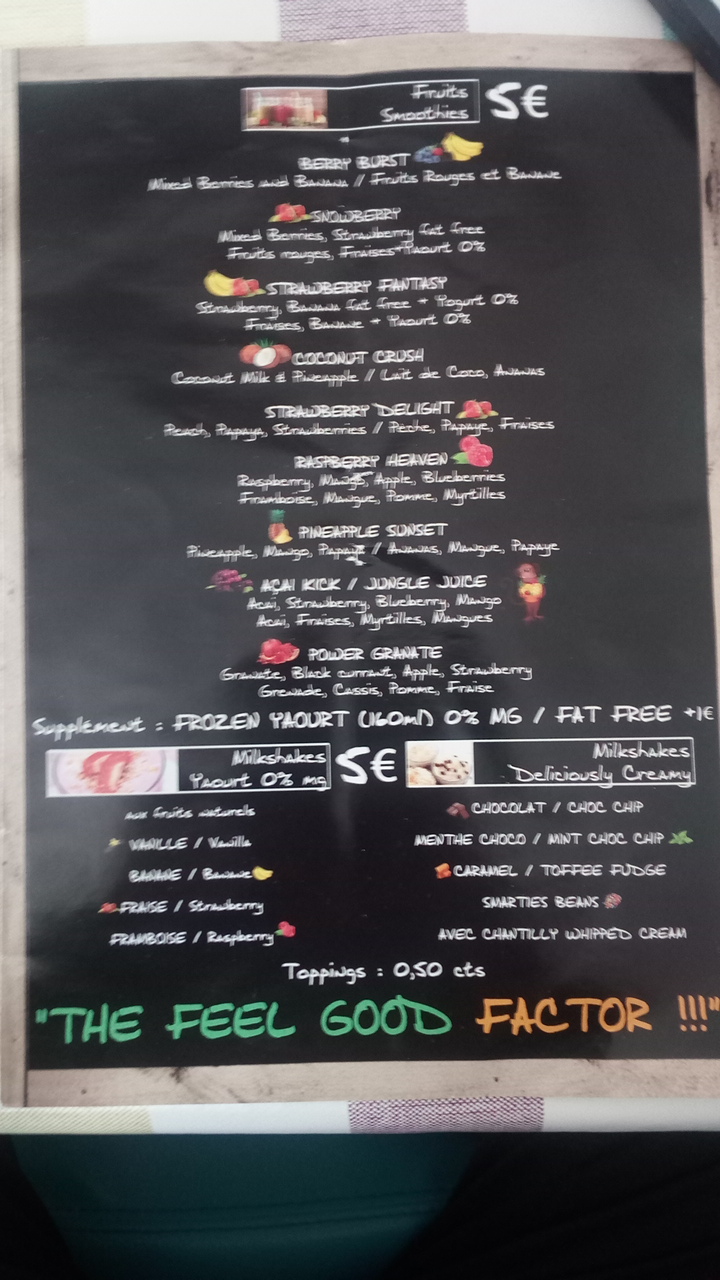 Fruits
Smoothies
5€
BERRY BURST
Mixed Berries and Banana // Fruits Rouges et Banane
SNOWBERRY
Mixed Berries, Strawberry fat free
Fruits rouges, Fraises+Yaourt 0%
STRAWBERRY FANTASY
Strawberry, Banana fat free + Yogurt 0%
Fraises, Banane + Yaourt 0%
COCONUT CRUSH
Coconut Milk & Pineapple // Lait de Coco, Ananas
STRAWBERRY DELIGHT
Peach, Papaya, Strawberries // Pêche, Papaye, Fraises
RASPBERRY HEAVEN
Raspberry, Mango, Apple, Blueberries
Framboise, Mangue, Pomme, Myrtilles
PINEAPPLE SUNSET
Pineapple, Mango, Papaye // Ananas, Mangue, Papaye
AÇAI KICK / JUNGLE JUICE
Acai, Strawberry, Blueberry, Mango
Acai, Fraises, Myrtilles, Mangues
POWER GRANATE
Granate, Black currant, Apple, Strawberry
Grenade, Cassis, Pomme, Fraise
Supplément : FROZEN YAOURT (160ml) 0% MG / FAT FREE +1€
Milkshakes
Yaourt 0% mg
5€
Milkshakes
Deliciously Creamy
aux fruits naturels
VANILLE / Vanilla
BANANE / Banane
FRAISE / Strawberry
FRAMBOISE / Raspberry
CHOCOLAT / CHOC CHIP
MENTHE CHOCO / MINT CHOC CHIP
CARAMEL / TOFFEE FUDGE
SMARTIES BEANS
AVEC CHANTILLY WHIPPED CREAM
Toppings : 0,50 cts
"THE FEEL GOOD FACTOR !!!"